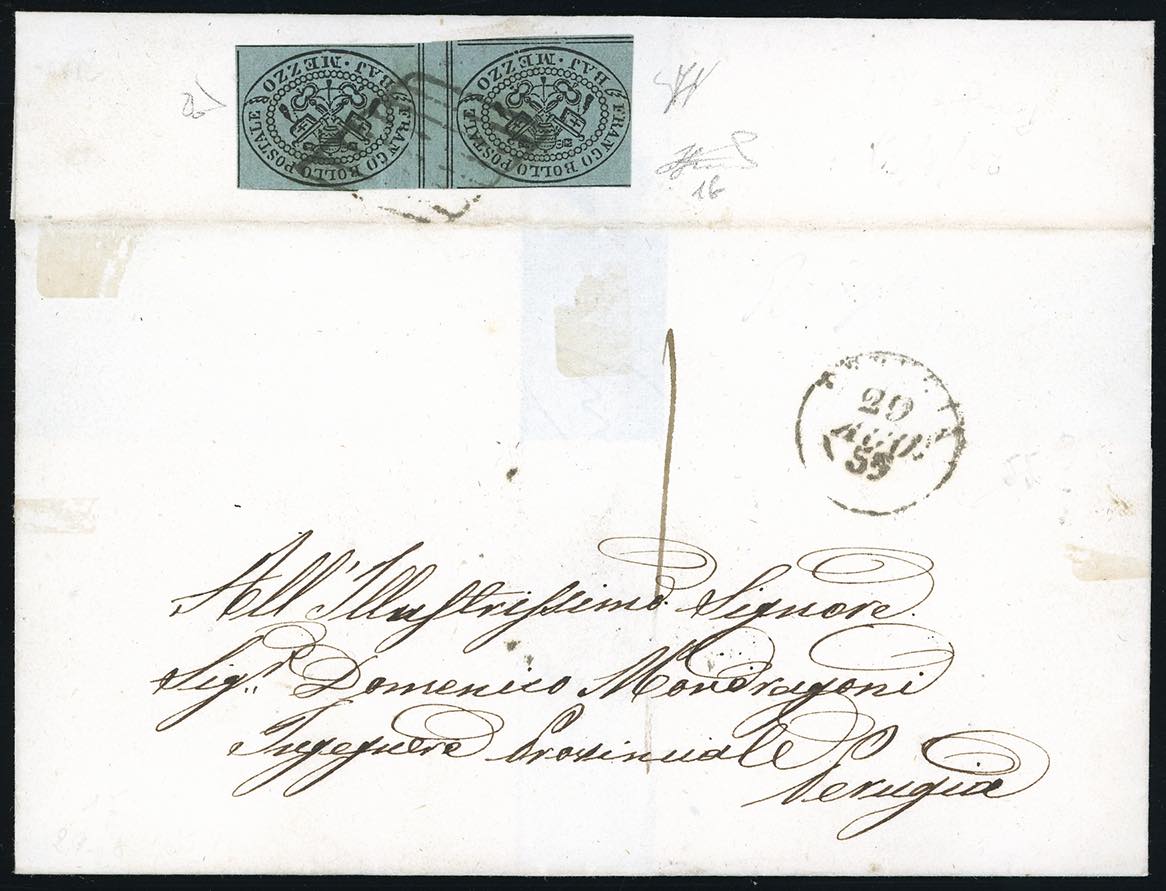 FRANCO BOLLO POSTALE
BAJ · MEZZO
FRANCO BOLLO POSTALE
BAJ · MEZZO
16
1
29
AGO.
55
All'Illustrissimo Signore
Sigr. Domenico Mondragoni
Ingegnere Provinciale
Perugia